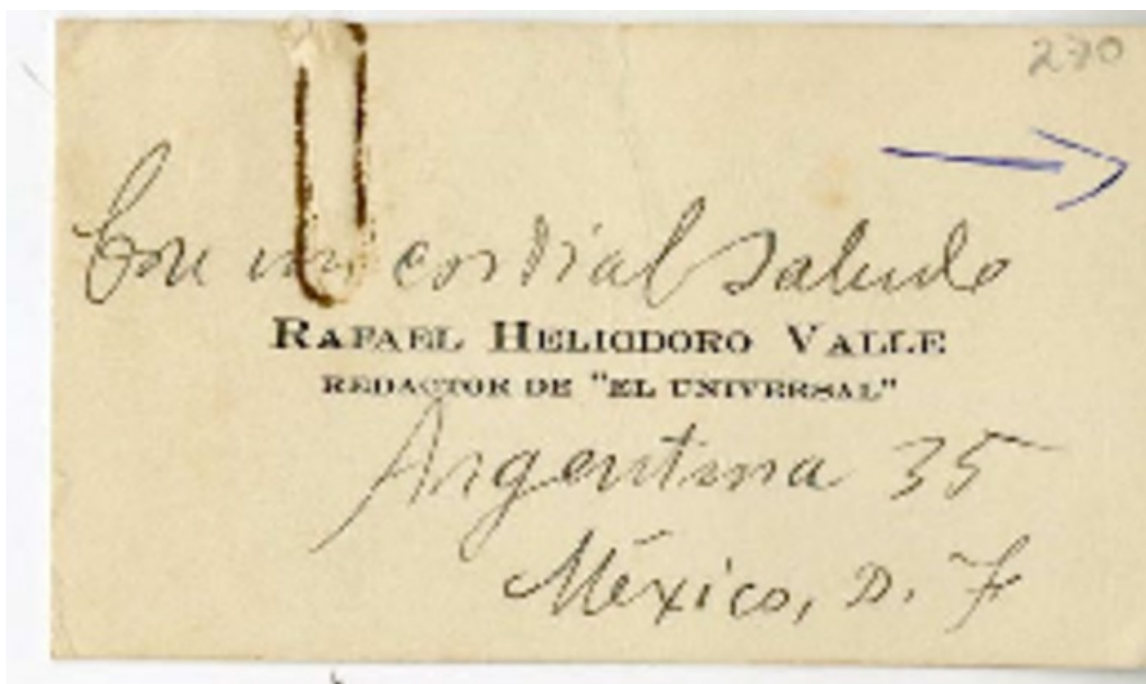 270
Con un cordial saludo
RAFAEL HELIODORO VALLE
REDACTOR DE "EL UNIVERSAL"
Argentina 35
México, D. F